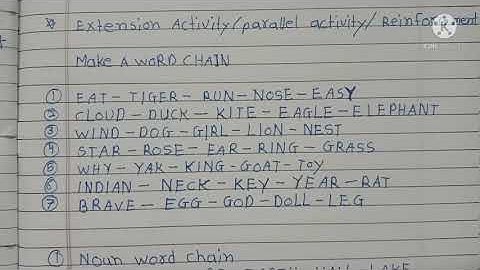 * Extension Activity/parallel activity/Reinforcement
MAKE A WORD CHAIN
① EAT – TIGER – RUN – NOSE – EASY
② CLOUD – DUCK – KITE – EAGLE – ELEPHANT
③ WIND – DOG – GIRL – LION – NEST
④ STAR – ROSE – EAR – RING – GRASS
⑤ WHY – YAK – KING – GOAT – TOY
⑥ INDIAN – NECK – KEY – YEAR – RAT
⑦ BRAVE – EGG – GOD – DOLL – LEG
① Noun word chain